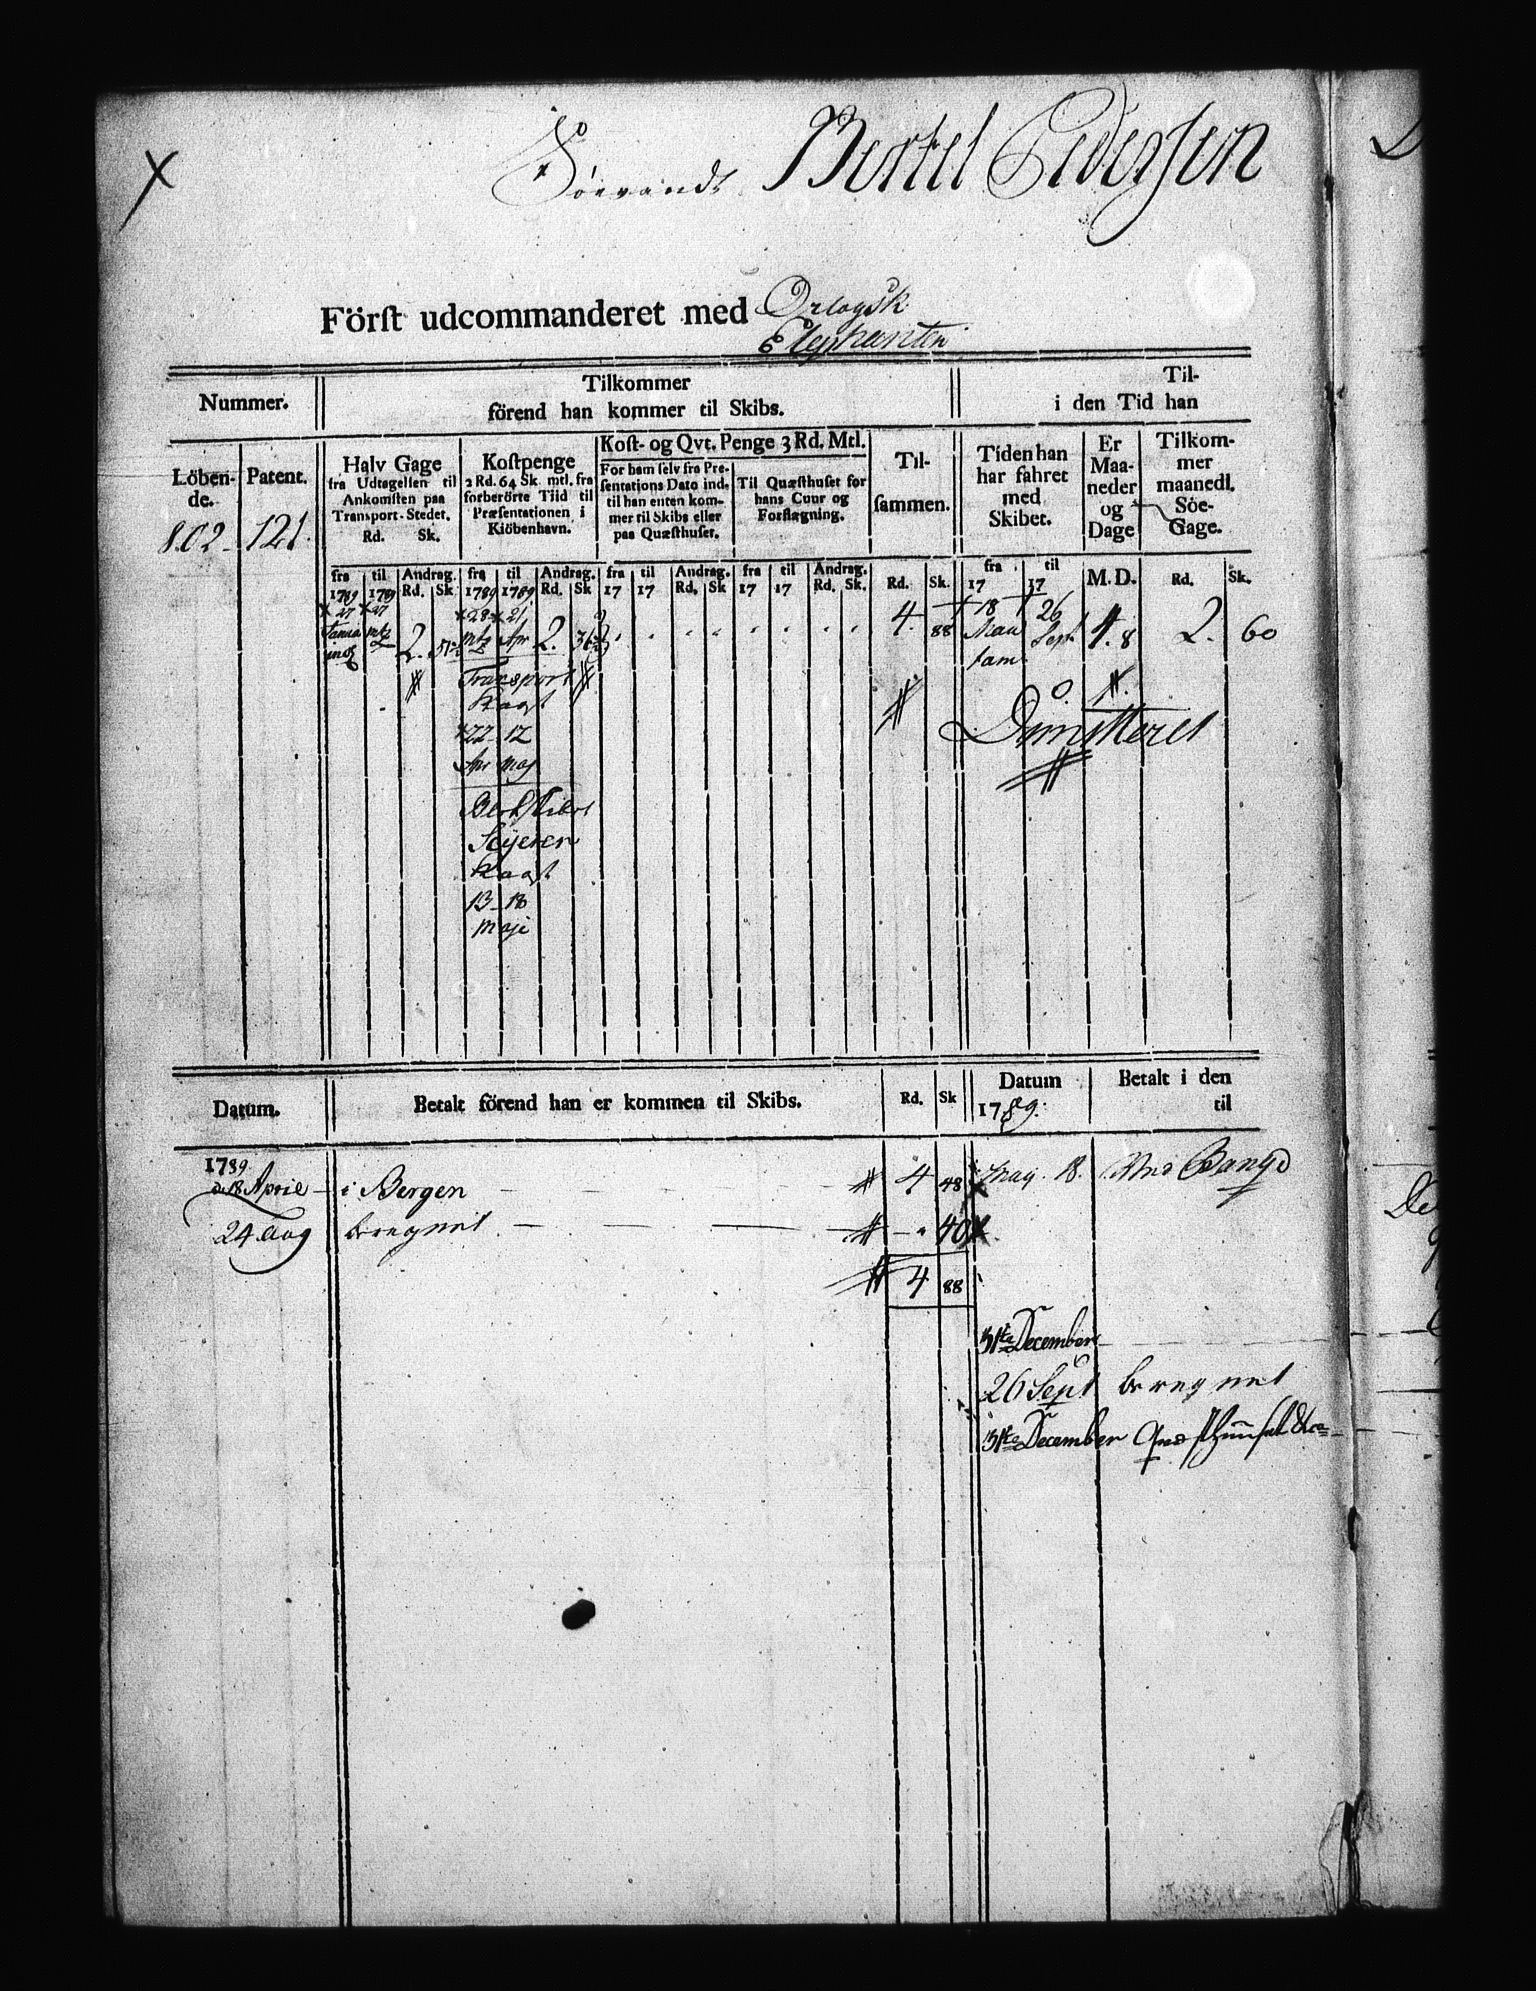 Bertel Pedersen
Först udcommanderet med Orlogsk
Elephanten
Nummer.
Tilkommer
förend han kommer til Skibs.
Til-
i den Tid han
Löben-
de.
Patent.
Halv Gage
fra Udtagelsen til
Ankomsten paa
Transport-Stedet.
Rd. Sk.
Kostpenge
2 Rd. 64 Sk. mtl. fra
forberörte Tiid til
Præsentationen i
Kiöbenhavn.
Kost- og Qvt. Penge 3 Rd. Mtl.
For ham selv fra Pre-
sentations Dato ind-
til han enten kom-
mer til Skibs eller
paa Quæsthuset.
Til Quæsthuset for
hans Cuur og
Forflægning.
Til-
sammen.
Tiden han
har fahret
med
Skibet.
Er
Maa-
neder
og
Dage
Tilkom-
mer
maanedl.
Söe-
Gage.
802 121.
fra til Andrag. fra til Andrag. fra til Andrag. fra til Andrag. fra til
1789 1789 Rd. Sk 1789 1789 Rd. Sk 17 17 Rd. Sk 17 17 Rd. Sk. Rd. Sk. 17 17 M. D. Rd. Sk.
27 27 28 21 4 88 18 26
2. Apr 2. Sept 4. 8 2. 60
Transport
Kaast
22 12
Apr maj
Blokskibet
Seyeren
Kaast
13 18
Maji
Dimitteret
Datum.
Betalt förend han er kommen til Skibs.
Rd. Sk
Datum
1789.
Betalt i den
til
1789
d 18 April i Bergen 4 48
May 18. Bange
24 Aug beregnet 40
4 88
31te December
26 Sept beregnet
31te December